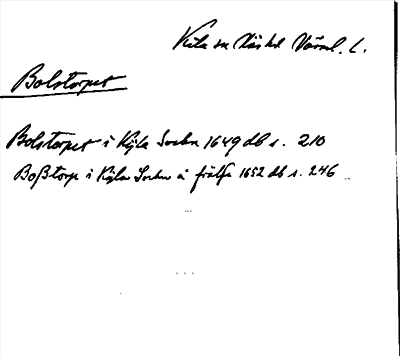 Kila sn Näs hd Värml. L.
Bolstorpet
Bolstorpet i Kijla Sochn 1649 db s. 210
Boßtorp i Kijla Sochn à frälse 1652 db s. 246